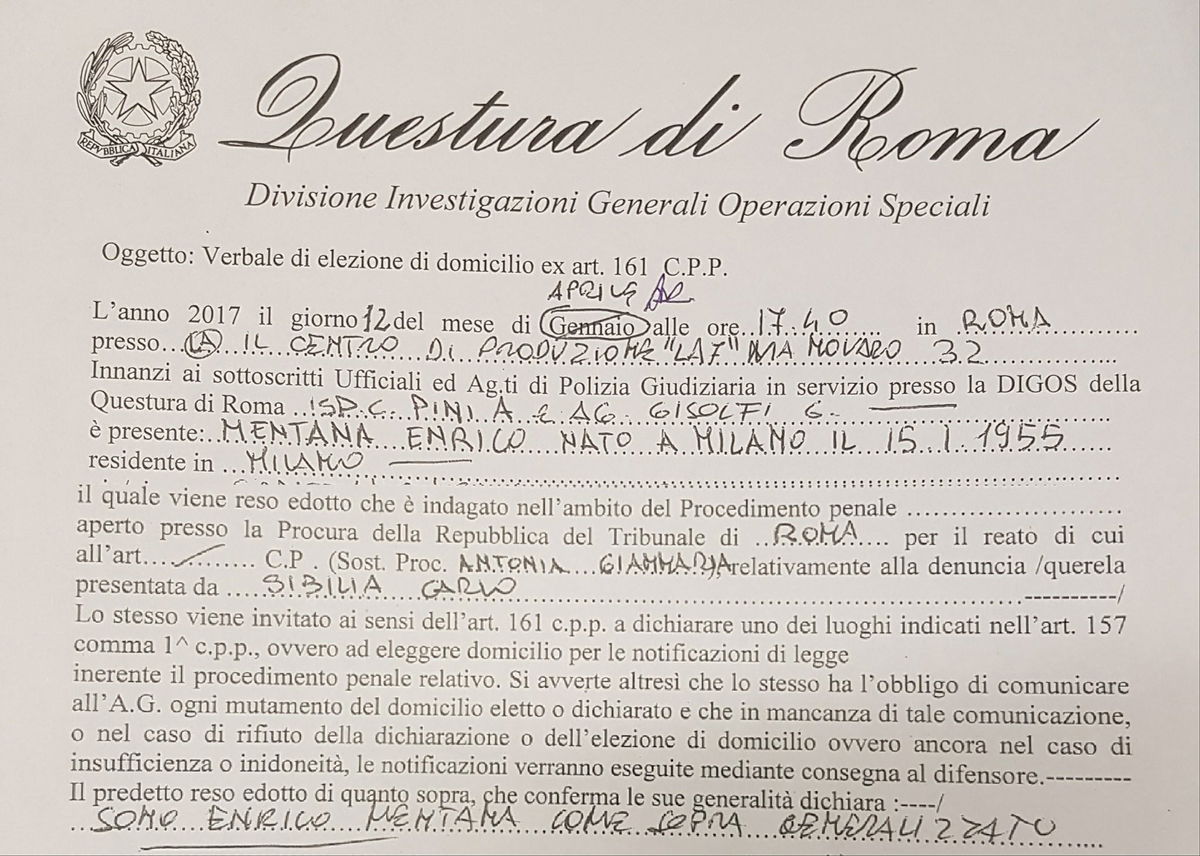 REPVBBLICA ITALIANA
Questura di Roma
Divisione Investigazioni Generali Operazioni Speciali
Oggetto: Verbale di elezione di domicilio ex art. 161 C.P.P.
APRILE
L'anno 2017 il giorno 12 del mese di Gennaio alle ore..17.40...... in ROMA............
presso...(LA) IL CENTRO DI PRODUZIONE "LA7" VIA NOVARO 32................
Innanzi ai sottoscritti Ufficiali ed Ag.ti di Polizia Giudiziaria in servizio presso la DIGOS della
Questura di Roma ..ISP.C. PINI A. e AG. GISOLFI G. ............
è presente:..MENTANA ENRICO NATO A MILANO IL 15.1.1955
residente in ...MILANO ............
il quale viene reso edotto che è indagato nell'ambito del Procedimento penale ............................
aperto presso la Procura della Repubblica del Tribunale di ..ROMA.... per il reato di cui
all'art............ C.P . (Sost. Proc. ANTONIA GIAMMARIA relativamente alla denuncia /querela
presentata da .....SIBILIA CARLO............----------/
Lo stesso viene invitato ai sensi dell'art. 161 c.p.p. a dichiarare uno dei luoghi indicati nell'art. 157
comma 1^ c.p.p., ovvero ad eleggere domicilio per le notificazioni di legge
inerente il procedimento penale relativo. Si avverte altresì che lo stesso ha l'obbligo di comunicare
all'A.G. ogni mutamento del domicilio eletto o dichiarato e che in mancanza di tale comunicazione,
o nel caso di rifiuto della dichiarazione o dell'elezione di domicilio ovvero ancora nel caso di
insufficienza o inidoneità, le notificazioni verranno eseguite mediante consegna al difensore.---------
Il predetto reso edotto di quanto sopra, che conferma le sue generalità dichiara :----/
...SONO ENRICO MENTANA COME SOPRA GENERALIZZATO